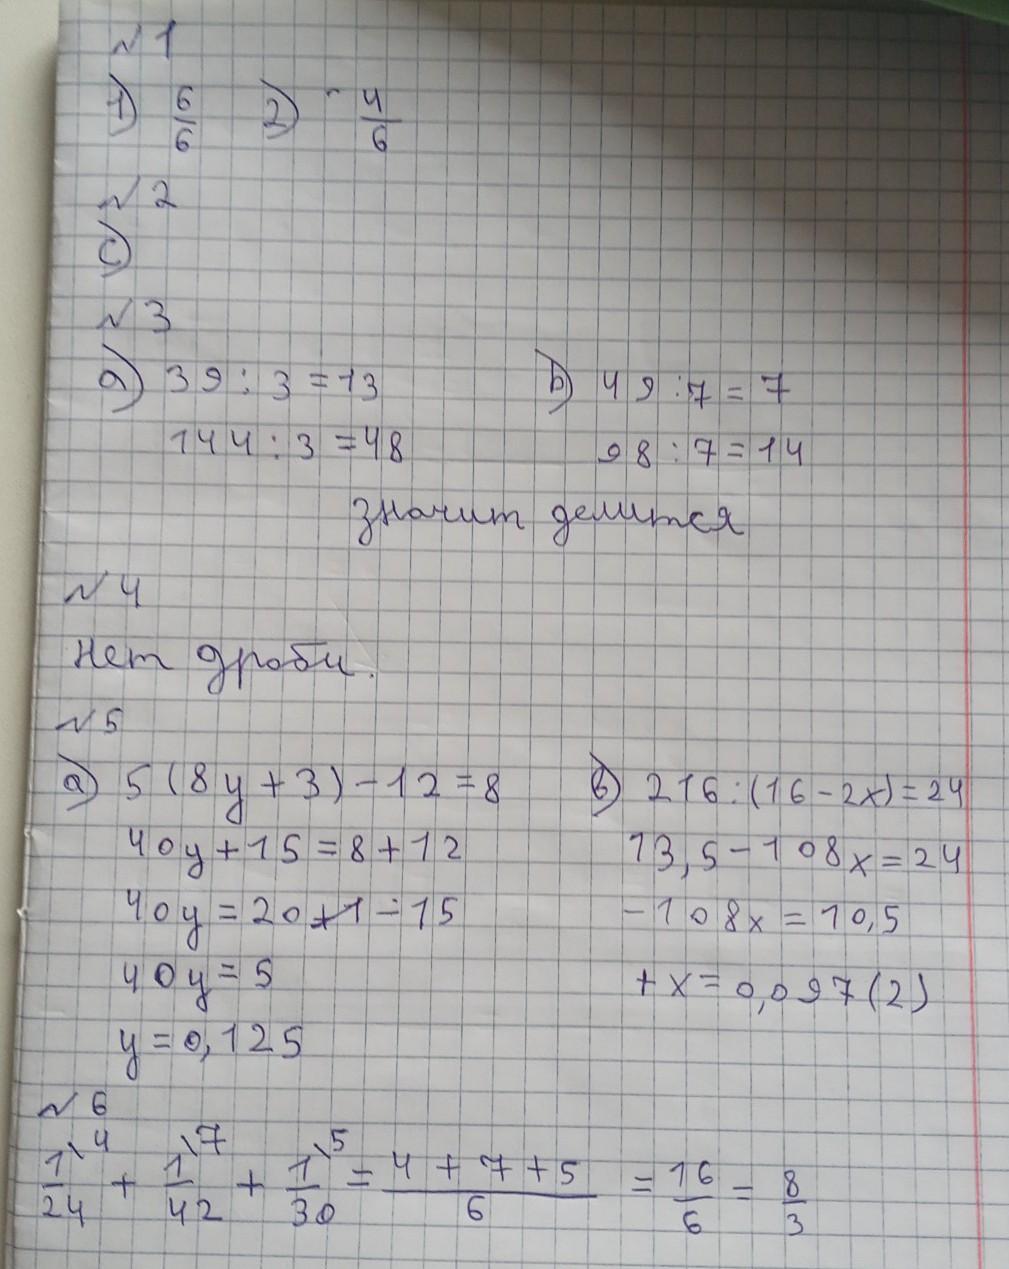 №1
1) 6/6 2) - 4/6
№2
c)
№3
a) 39 : 3 = 13 b) 49 : 7 = 7
144 : 3 = 48 98 : 7 = 14
значит делится
№4
Нет дроби.
№5
a) 5(8y+3)-12=8 b) 216:(16-2x)=24
40y+15=8+12 13,5-108x=24
40y=20+1-15 -108x=10,5
40y=5 +x=0,097(2)
y=0,125
№6
1\4/24 + 1\7/42 + 1\5/30 = 4+7+5/6 = 16/6 = 8/3